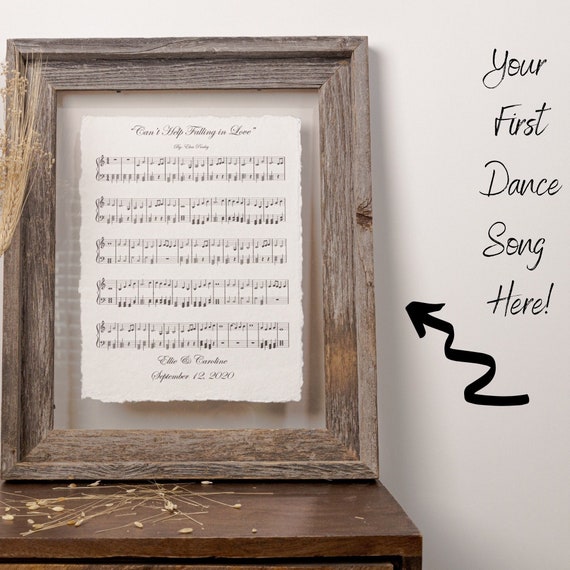 "Can't Help Falling in Love"
By: Elvis Presley
Ellie & Caroline
September 12, 2020
Your
First
Dance
Song
Here!